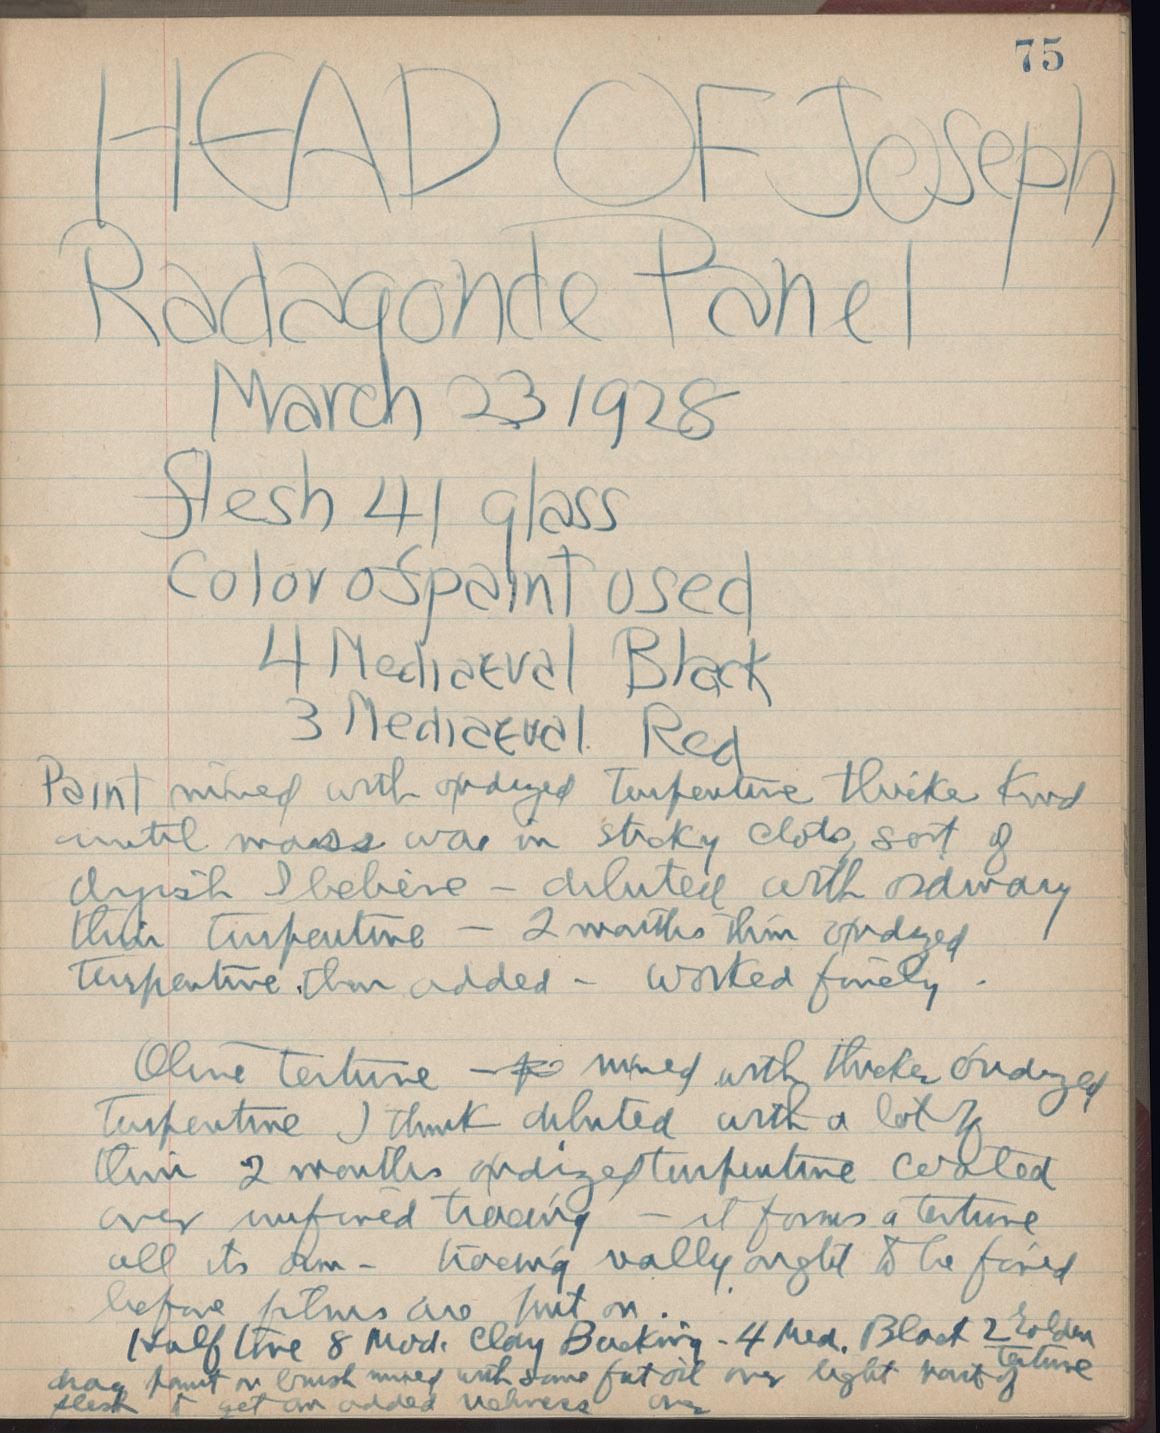 75
HEAD OF Joseph
Radagonde Panel
March 23 1928
flesh 41 glass
Color of paint used
4 Mediaeval Black
3 Mediaeval Red
Paint mixed with oxidized Turpentine thicker kind
until mass was in sticky clots, sort of
dryish I believe – diluted with ordinary
thin turpentine – 2 months thin oxidized
turpentine then added – worked finely.
Olive Texture – mixed with thicker oxidized
Turpentine I think diluted with a lot of
thin 2 months oxidized turpentine coated
over unfired tracing – it forms a texture
all its own – tracing really ought to be fired
before films are put on.
Half tine 8 Mod. Clay Backing – 4 Med. Black 2 Golden
texture
drag paint on brush mixed with some fat oil over light parts of
flesh to get an added richness over